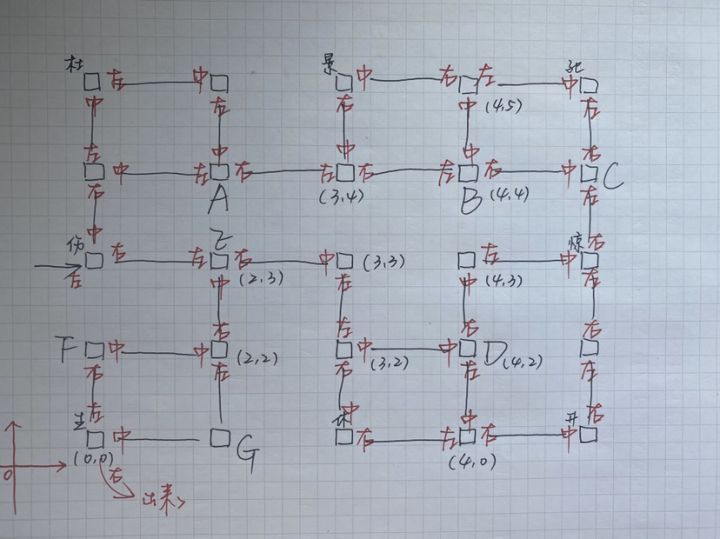 杜 左 中 景 中 右 左 中 死
中 左 中 右 中 (4,5) 左
左 中 左 右 左 右 左 右 中 右
A (3,4) B (4,4) C
右 左
中 右
伤 右 左 右 中 (3,3) 左 中 惊
左 (2,3) (4,3)
中 左 中 左
右 左 右 右
F 中 中 (2,2) 中 (3,2) 中 D (4,2)
右 左 右 左 左
左 中 中 右
生 中 G 休 右 左 右 中 开
(0,0) (4,0)
0 右 出来